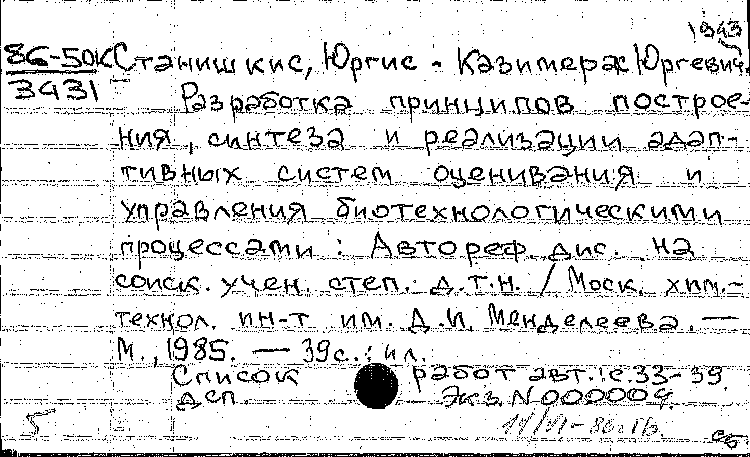 1943
86-50К Станишкис, Юргис-Казимерас Юргевич.
3431
Разработка принципов построе-
ния, синтеза и реализации адап-
тивных систем оценивания и
управления биотехнологическими
процессами : Автореф. дис. на
соиск. учен. степ. д.т.н. / Моск. хим.-
технол. ин-т им. Д.И. Менделеева. —
М., 1985. — 39 с. : ил.
Список работ авт.: с. 33-39.
ДСП. Экз. N 000004.
5